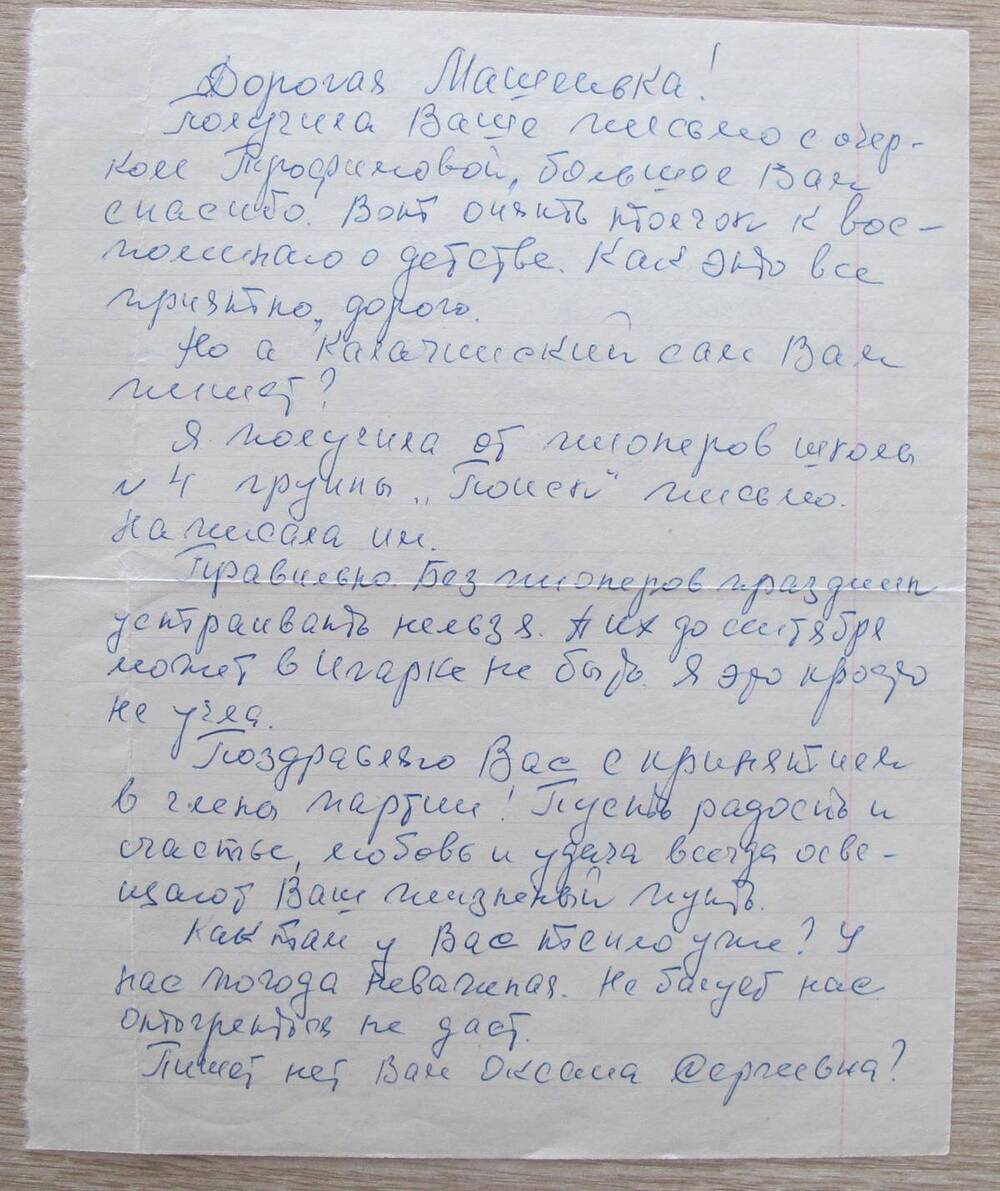 Дорогая Машенька!
Получила Ваше письмо с очер-
ком Трофимовой, большое Вам
спасибо. Вот опять толчок к вос-
поминаю о детстве. Как это все
приятно, дорого.
Но а Калачинский сам Вам
пишет?
Я получила от пионеров школы
№ 4 группы „Поиск" письмо.
Написала им.
Правильно. Без пионеров праздник
устраивать нельзя. А их до сентября
может в Игарке не быть. Я это просто
не учла.
Поздравляю Вас с принятием
в члены партии! Пусть радость и
счастье, любовь и удача всегда осве-
щают Ваш жизненный путь.
Как там у Вас тепло уже? У
нас погода неважная. Не балует нас
отогреться не даст.
Пишет нет Вам Оксана Сергеевна?